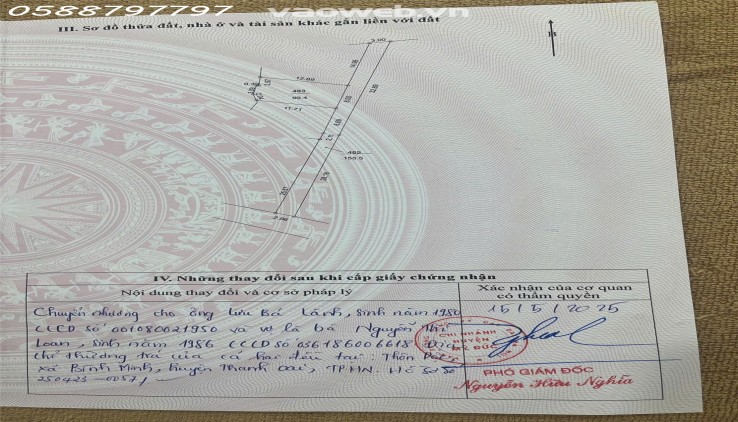 0588797797
vaoweb.vn
III. Sơ đồ thửa đất, nhà ở và tài sản khác gắn liền với đất
3.00
12.69
493
99.4
11.71
492
155.5
IV. Những thay đổi sau khi cấp giấy chứng nhận
Nội dung thay đổi và cơ sở pháp lý
Xác nhận của cơ quan
có thẩm quyền
Chuyển nhượng cho ông Lưu Bá Lánh, sinh năm 1980
CCCD số 001080021950 và vợ là bà Nguyễn Thị
Loan, sinh năm 1986 CCCD số 036186006618 Địa
chỉ thường trú của cả hai đều tại: Thôn
xã Bình Minh, huyện Thanh Oai, TPHN. Hồ sơ số
250423-0057/
15/5/2025
HUYỆN
PHÓ GIÁM ĐỐC
Nguyễn Hữu Nghĩa